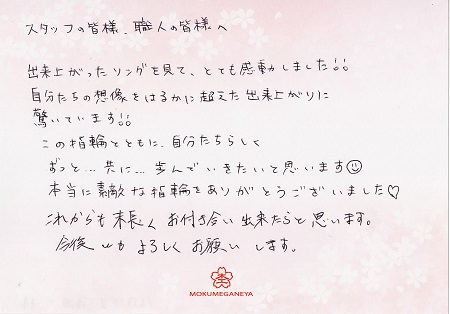 スタッフの皆様、職人の皆様へ
出来上がったリングを見て、とても感動しました!!
自分たちの想像をはるかに超えた出来上がりに
驚いています!!
この指輪とともに、自分たちらしく
ずっと…共に…歩んでいきたいと思います☺
本当に素敵な指輪をありがとうございました♡
これからも末長くお付き合い出来たらと思います。
今後ともよろしくお願いします。
MOKUMEGANEYA